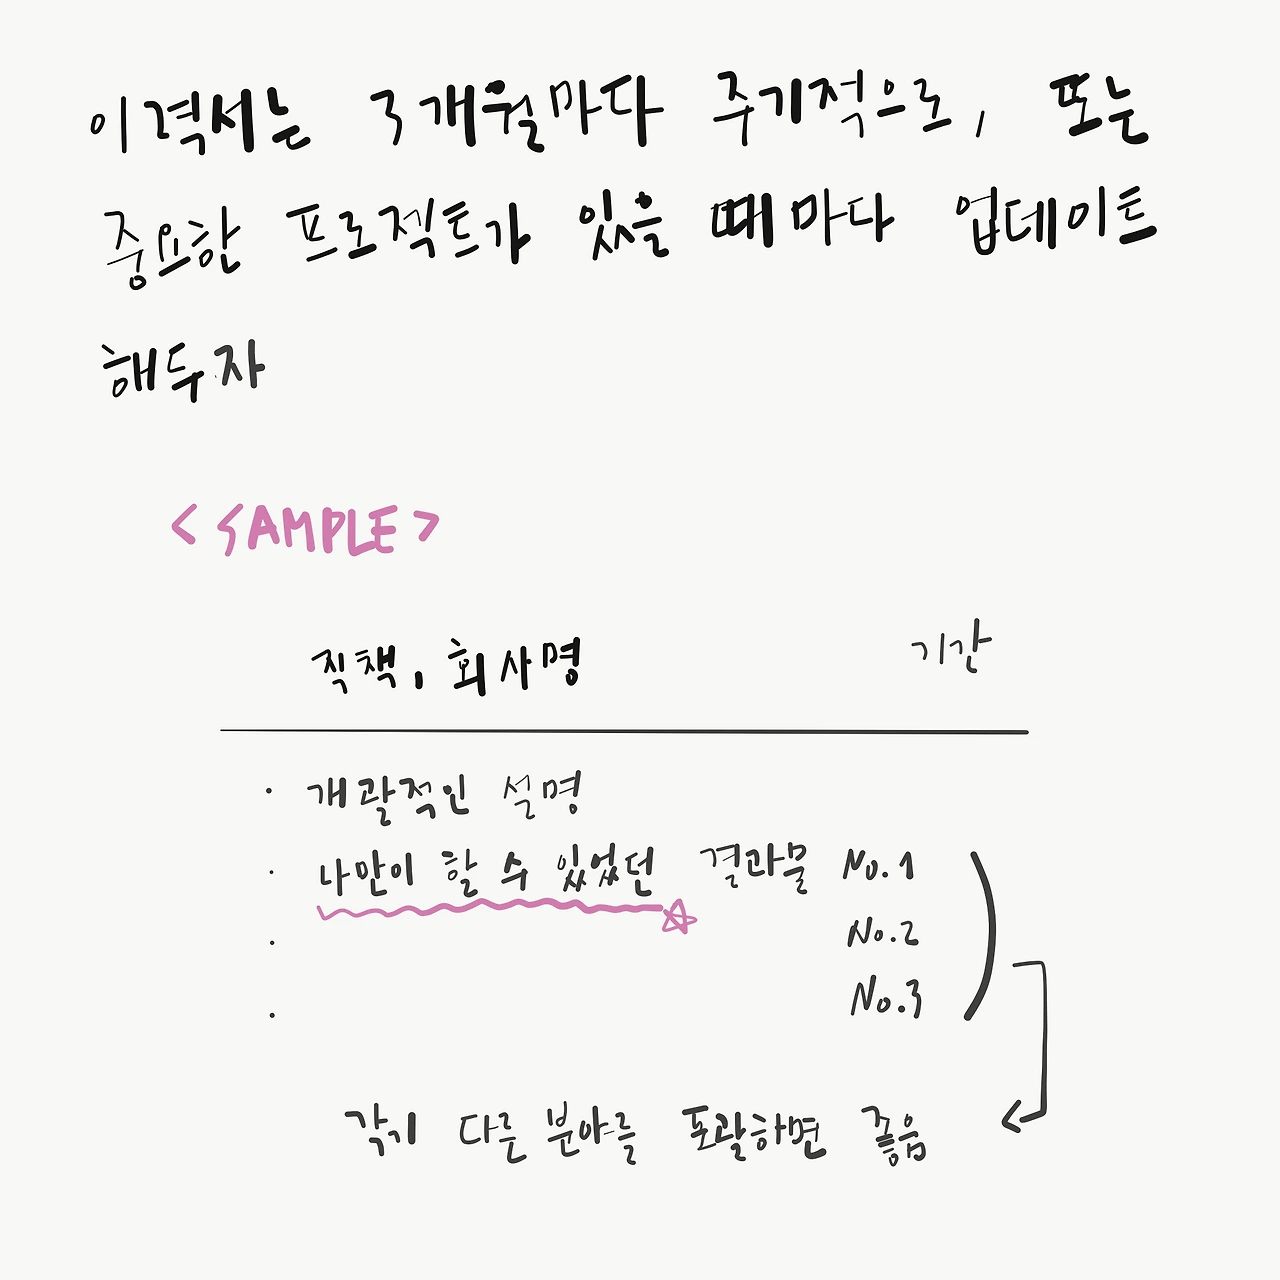 이력서는 3개월마다 주기적으로, 또는
중요한 프로젝트가 있을 때마다 업데이트
해두자
<SAMPLE>
직책, 회사명 기간
· 개괄적인 설명
· 나만이 할 수 있었던 결과물 No.1
· No.2
· No.3
각기 다른 분야를 포괄하면 좋음